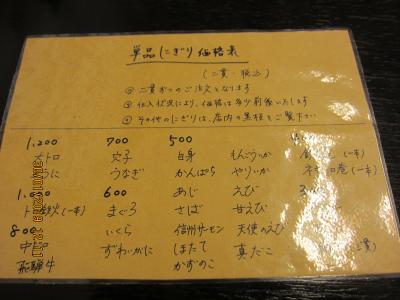 単品にぎり価格表
(二貫・税込)
◎二貫からのご注文となります
◎仕入状況により、価格は多少前後いたします
◎その他のにぎりは、店内の黒板をご覧下さい
1,200
大トロ
うに
トロ鉄火(一本)
800
中トロ
飛騨牛
700
穴子
うなぎ
600
まぐろ
いくら
ずわいがに
500
白身
かんぱち
あじ
さば
信州サーモン
ほたて
かずのこ
もんごういか
やりいか
えび
甘えび
天使のえび
真だこ
(一本)
(一本)